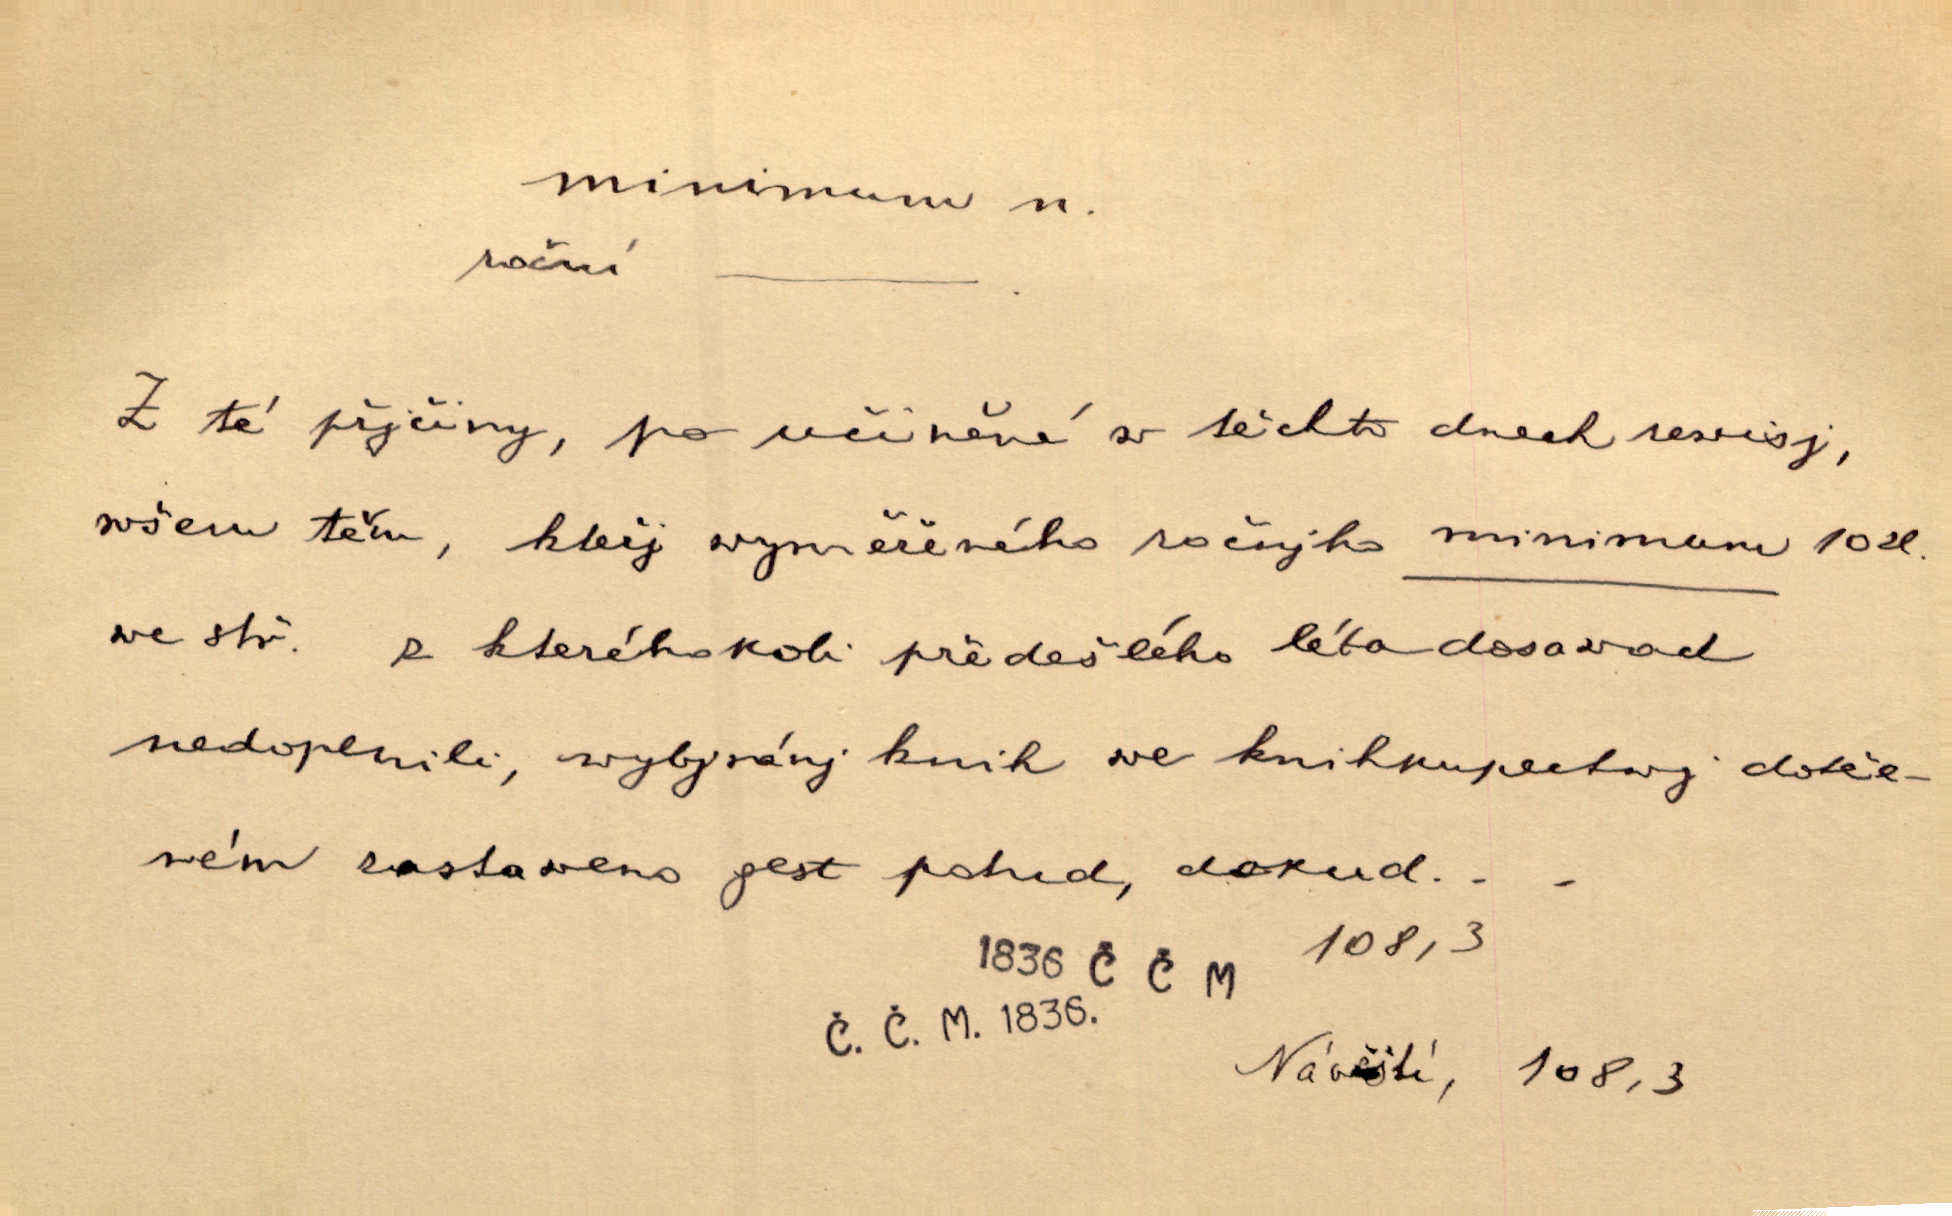 minimum n.
roční ———.
Z té přjčiny, po učiněné w těchto dnech rewisj,
wšem těm, kteřj wyměřeného ročnjho minimum 10 zl.
we stř. z kteréhokoli předešlého léta dosawad
nedoplnili, wybjránj knih we knihkupectwj dotče-
ném zastaweno gest potud, dokud. - -
1836 Č Č M 108,3
Č. Č. M. 1836.
Návěští, 108,3